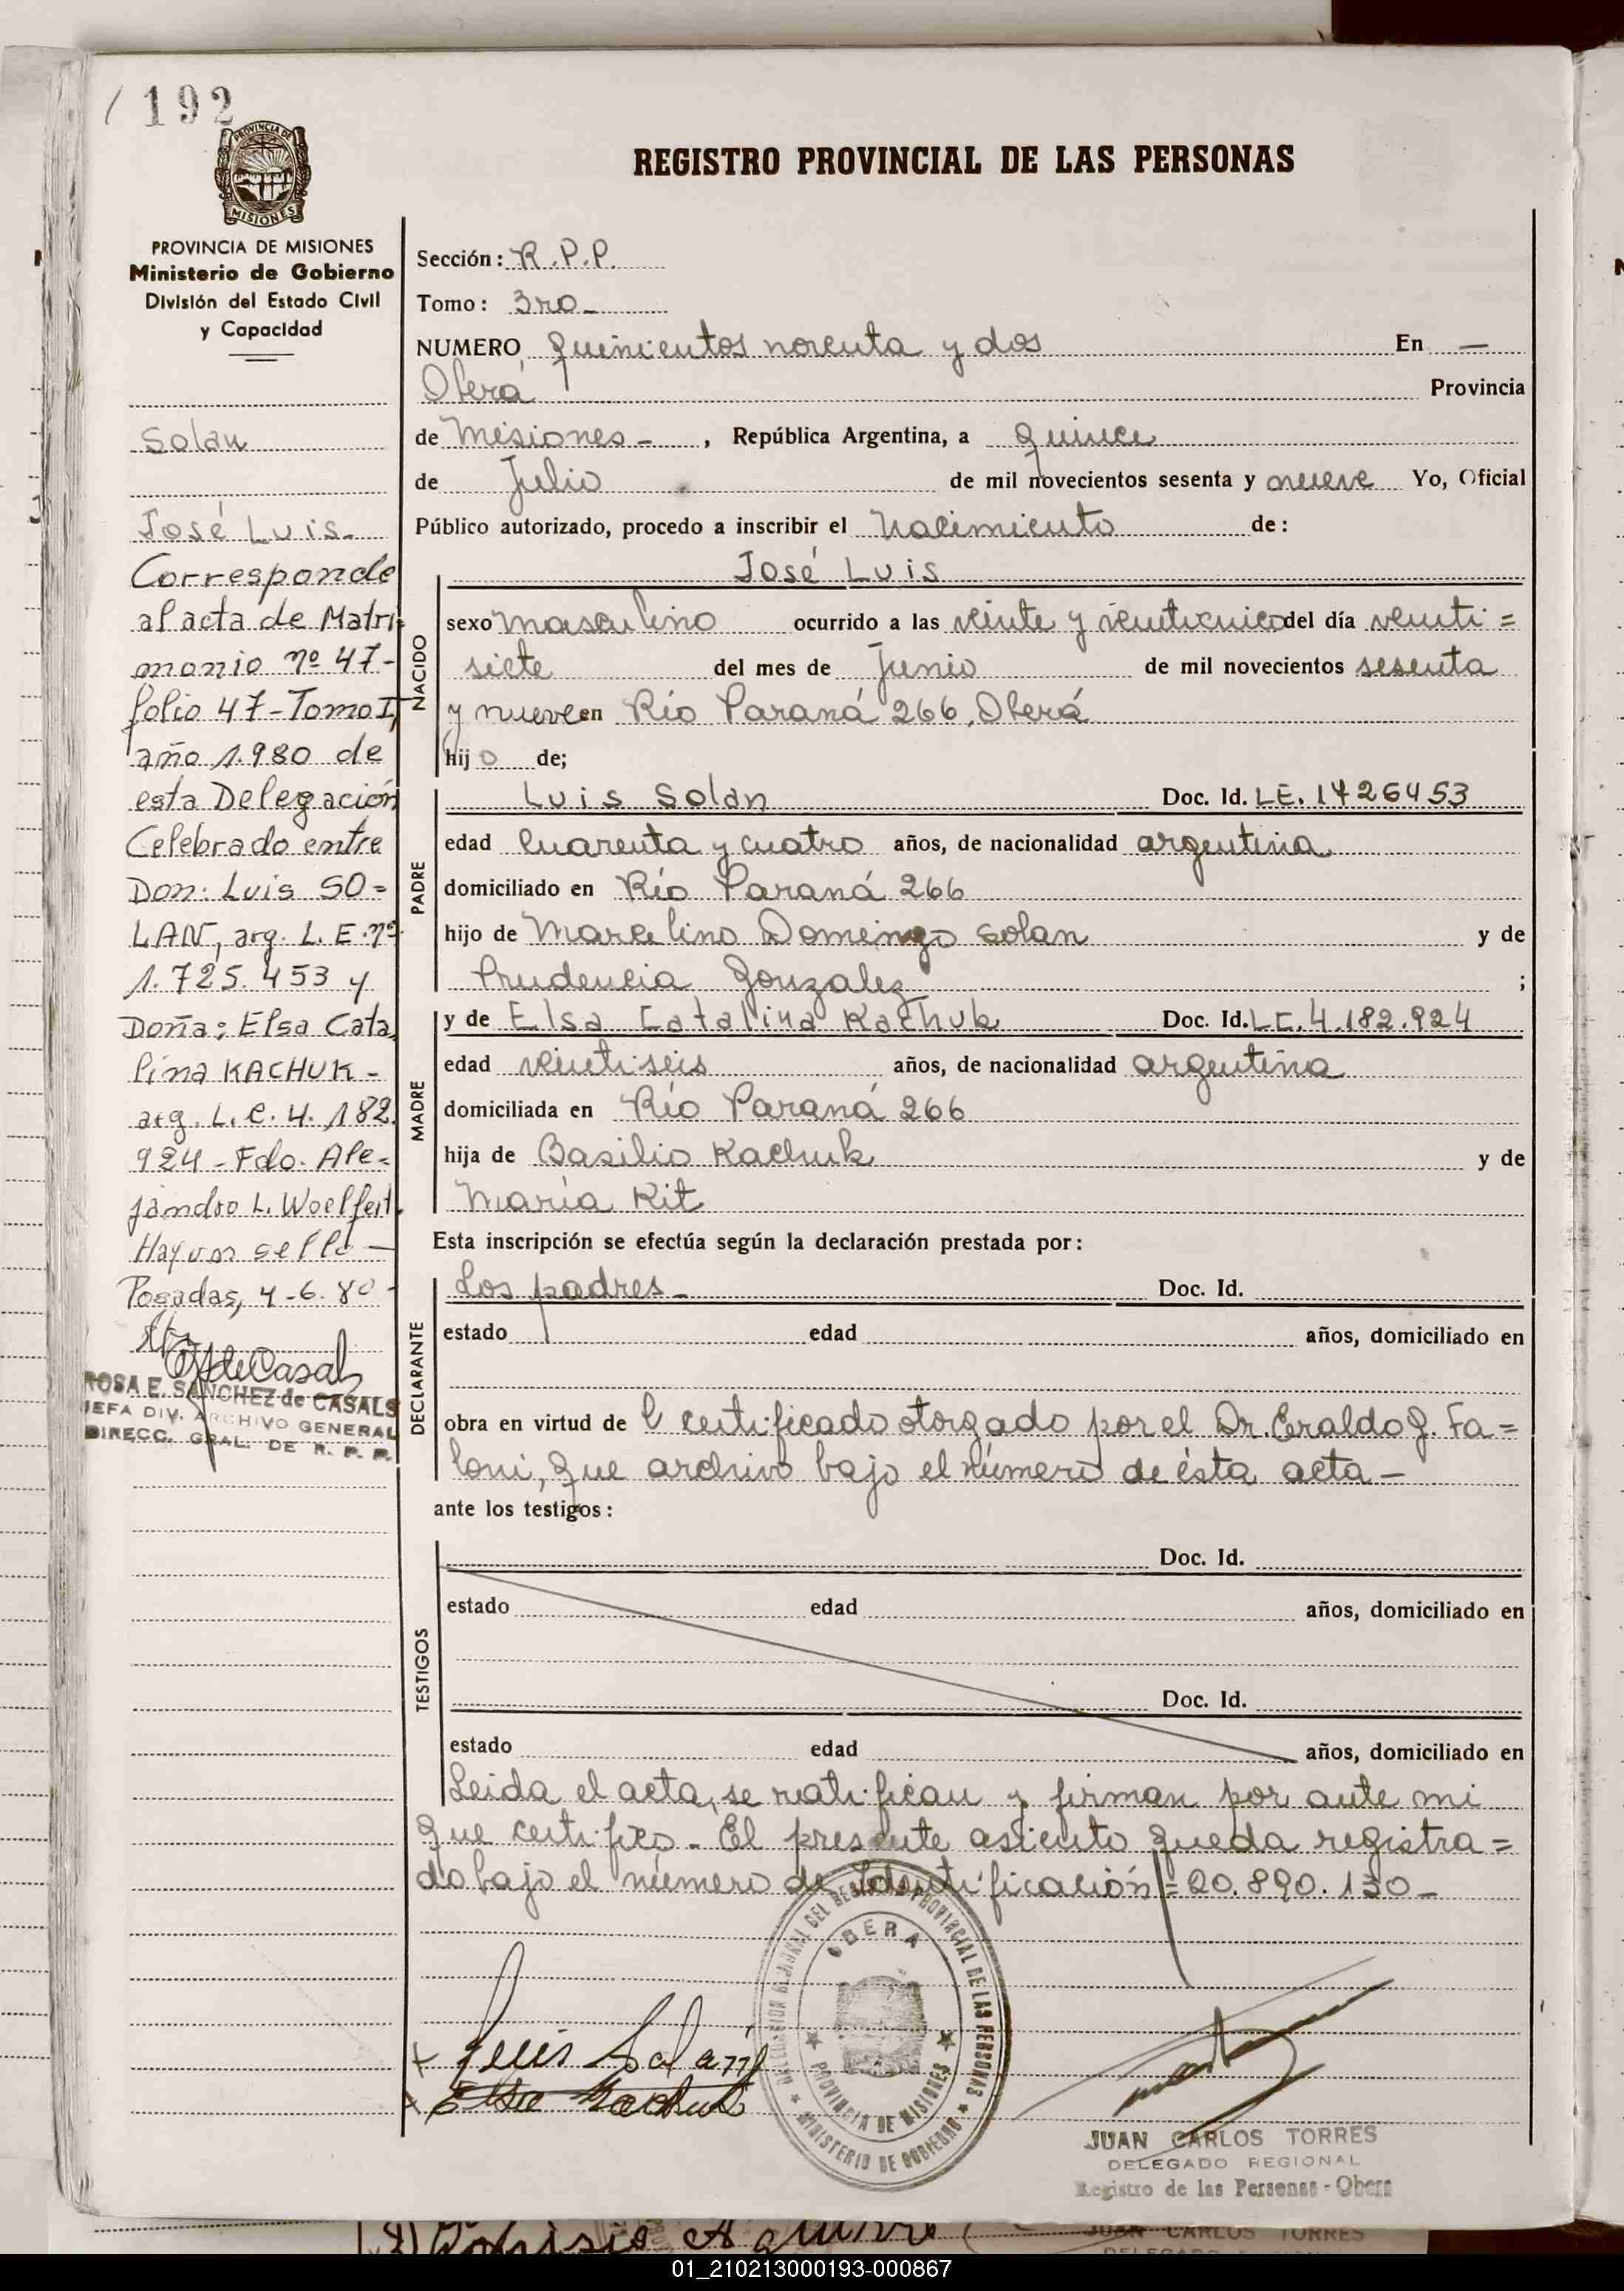 192
PROVINCIA DE
MISIONES
PROVINCIA DE MISIONES
Ministerio de Gobierno
División del Estado Civil
y Capacidad
Solan
José Luis.-
Corresponde
al acta de Matri-
monio nº 47-
folio 47-Tomo I,
año 1.980 de
esta Delegación
Celebrado entre
Don: Luis SO=
LAN, arg. L.E.nº
1.725.453 y
Doña: Elsa Cata
lina KACHUK-
arg. L.C. 4.182.
924-Fdo. Ale-
jandro L. Woelfert.
Hay un sello-
Posadas, 4-6.80-
ROSA E. SANCHEZ de CASALS
JEFA DIV. ARCHIVO GENERAL
DIRECC. GRAL. DE R. P. P.
REGISTRO PROVINCIAL DE LAS PERSONAS
Sección: R.P.P.
Tomo: 3ro-
NUMERO Quinientos noventa y dos En —
Oberá Provincia
de Misiones-, República Argentina, a quince
de Julio de mil novecientos sesenta y nueve Yo, Oficial
Público autorizado, procedo a inscribir el Nacimiento de:
José Luis
NACIDO
sexo masculino ocurrido a las veinte y veinticinco del día venti=
siete del mes de Junio de mil novecientos sesenta
y nueve en Río Paraná 266, Oberá
hijo de;
PADRE
Luis Solan Doc. Id. LE. 1726453
edad Cuarenta y cuatro años, de nacionalidad argentina
domiciliado en Río Paraná 266
hijo de Marcelino Domingo Solan y de
Prudencia Gonzalez ;
MADRE
y de Elsa Catalina Kachuk Doc. Id. LC. 4.182.924
edad veintiseis años, de nacionalidad argentina
domiciliada en Río Paraná 266
hija de Basilio Kachuk y de
María Kit
Esta inscripción se efectúa según la declaración prestada por:
DECLARANTE
Los padres- Doc. Id.
estado edad años, domiciliado en
obra en virtud de l certificado otorgado por el Dr. Eraldo J. Fa=
loni, que archivo bajo el número de ésta acta-
ante los testigos:
TESTIGOS
Doc. Id.
estado edad años, domiciliado en
Doc. Id.
estado edad años, domiciliado en
Leida el acta, se ratifican y firman por ante mi
que certifico- El presente asiento queda registra=
do bajo el número de Identificación = 20.890.130-
Luis Solan
Elsa Kachuk
DEL REGISTRO PROVINCIAL DE LAS PERSONAS
OBERA
PROVINCIA DE MISIONES
MINISTERIO DE GOBIERNO
JUAN CARLOS TORRES
DELEGADO REGIONAL
Registro de las Personas - Obera
JUAN CARLOS TORRES
01_210213000193-000867